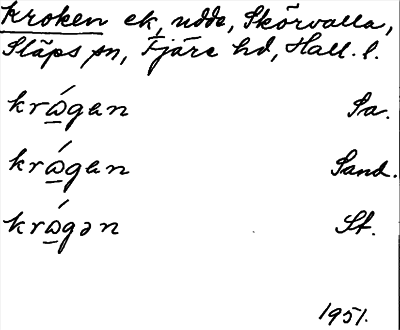 kroken ek, udde, Skörvalla,
Släps sn, Fjäre hd, Hall. l.
krώgen Sa.
krώgen Sand.
krώgən St.
1951.